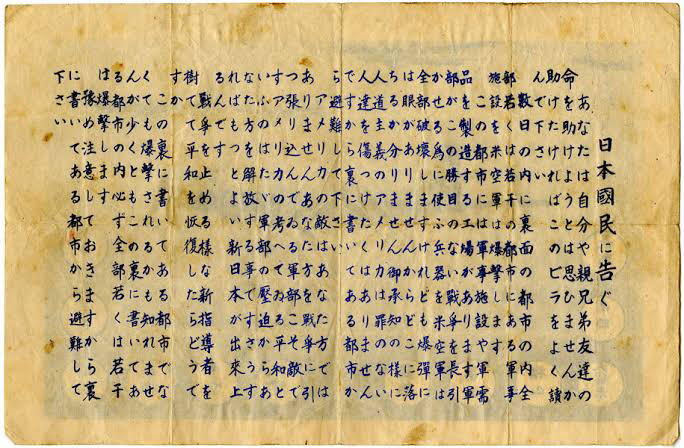 日本國民に告ぐ
あなたは自分や親兄弟友達の
命を助けようとは思ひませんか
助けたければこのビラをよく讀
んで下さい
數日の内に裏面の都市の内全
部若くは若干の都市にある軍事
施設を米空軍は爆撃します
この都市には軍事施設や軍需
品を製造する工場があります軍
部がこの勝目のない戰爭を長引
かせる為に使ふ兵器を米空軍は
全部破壞しますけれども爆彈に
は眼がありませんからどこに落
ちるか分りません御承知の様に
人道主義のアメリカは罪のない
人達を傷つけたくはありません
ですから裏に書いてある都市か
ら避難して下さい
アメリカの敵はあなた方では
ありませんあなた方を戰爭に引
つ張り込んでゐる軍部こそ敵で
すアメリカの考へてゐる平和と
いふのはたゞ軍部の壓迫からあ
なた方を解放する事ですさうす
ればもつとよい新日本が出來上
るんです
戰爭を止める様な新指導者を
樹てて平和を恢復したらどうで
すか
この裏に書いてある都市でな
くても爆撃されるかも知れませ
んが少くともこの裏に書いてあ
る都市の内必ず全部若くは若干
は爆撃します
豫め注意しておきますから裏
に書いてある都市から避難して
下さい